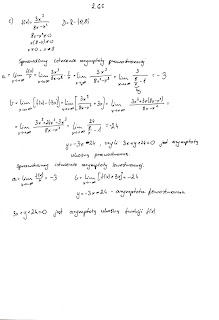 2.65
c) f(x) = 3x³/(8x-x²)   D = R - {0,8}
8x-x² ≠ 0
x(8-x) ≠ 0
x≠0 ∧ x≠8
Sprawdzamy istnienie asymptoty prawostronnej
a = lim x→∞ f(x)/x = lim x→∞ 3x³/(8x-x²) · 1/x = lim x→∞ 3x²/(8x-x²) = lim x→∞ 3/(8/x - 1) = -3
b = lim x→∞ [f(x)-(-3x)] = lim x→∞ [3x³/(8x-x²) + 3x] = lim x→∞
= lim x→∞ = lim x→∞ 24/(8/x - 1) = -24
y = -3x-24, czyli 3x+y+24=0 jest asymptotą
ukośną prawostronną.
Sprawdzamy istnienie asymptoty lewostronnej.
a = lim x→-∞ f(x)/x = -3   b = lim x→-∞ [f(x)+3x] = -24
y = -3x-24 - asymptota
3x+y+24=0 jest asymptotą ukośną funkcji f(x)